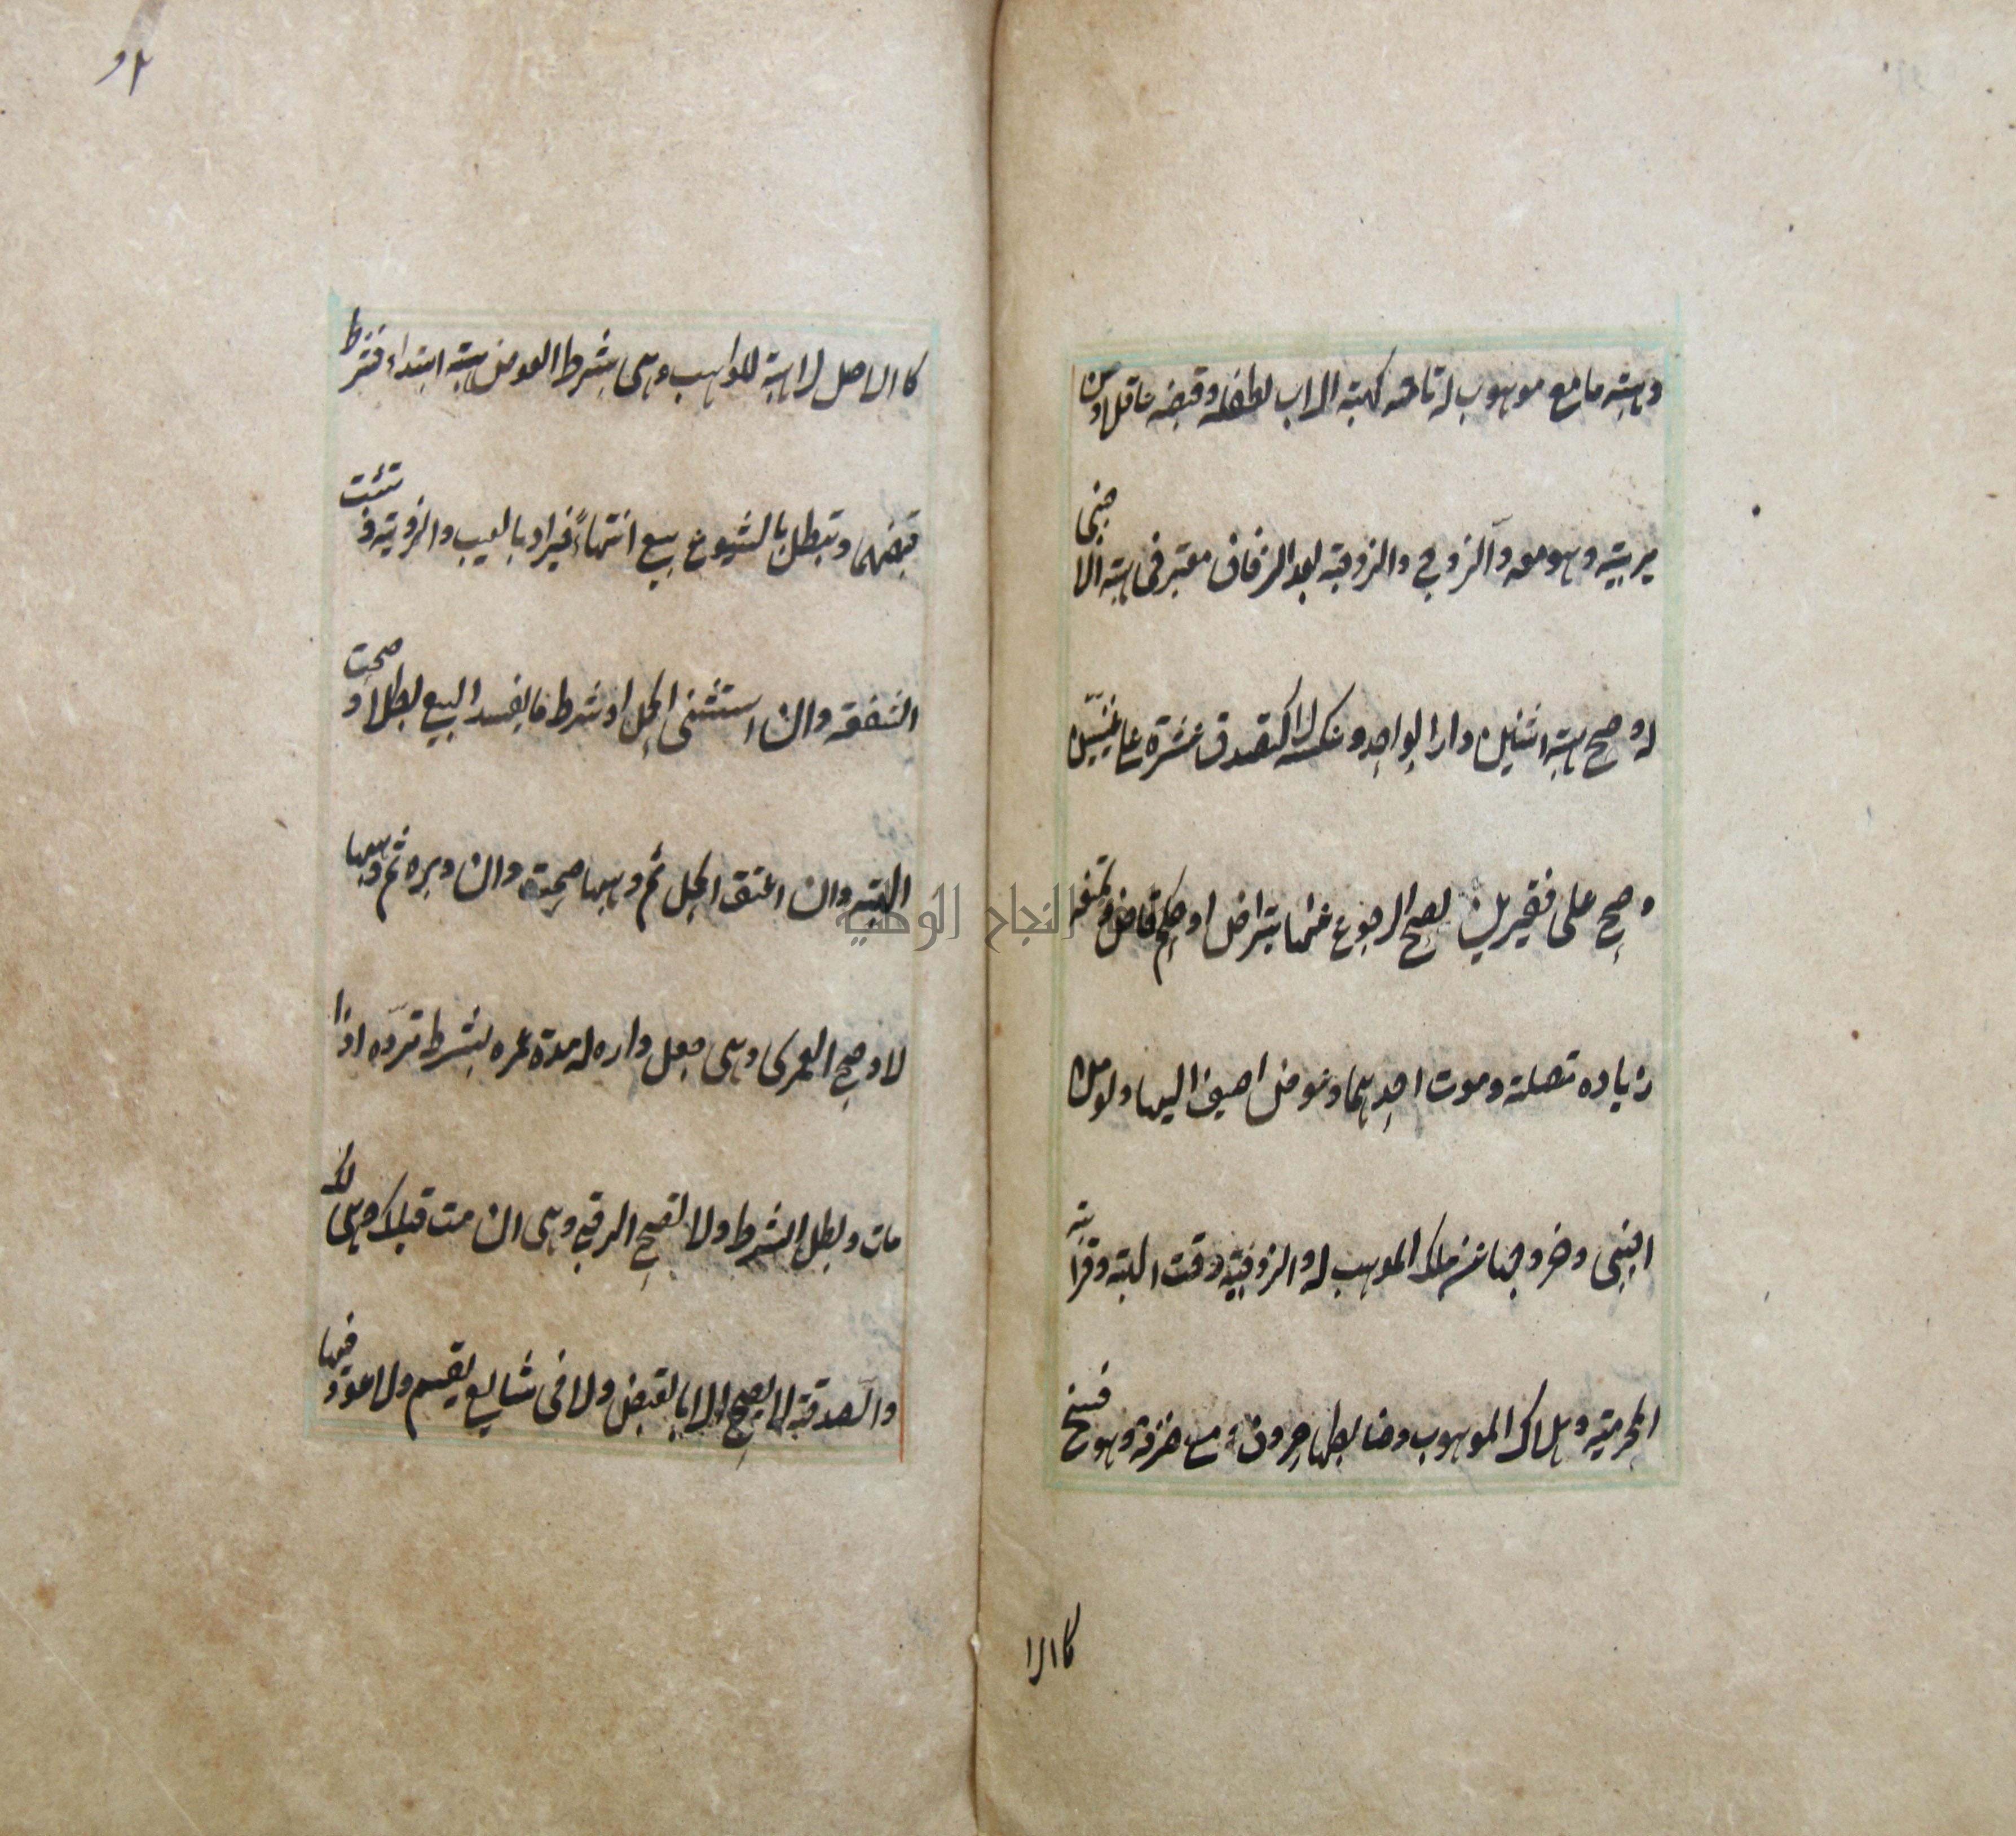 وهبته ما مع موهوب له تامة كهبة الاب لطفله وقبضه عاقلا ومن
يربيه وهو معه والزوج والزوجة بعد الزفاف معتبر في هبة الاجنبي
له وصح هبة اثنين دارا لواحد وعكسه لا كتصدق عشرة على غنيين
وصح على فقيرين يصح الرجوع عنها بتراض او حكم قاض ويمنعه
زيادة متصلة وموت احدهما وعوض اضيف اليها ولو من
اجنبي وخروجها عن ملك الموهب له والزوجية وقت الهبة وقرابة
المحرمية وهلاك الموهوب وضابطها حروف دمع خزقه وهو فسخ
كالا
٩٢
كالاصل لا هبة للواهب وهي بشرط العوض هبة ابتداء فشرط
قبضهما وتبطل بالشيوع بيع انتهاء فيراد بالعيب والرؤية وتثبت
الشفعة وان استثنى الحمل او شرط ما يفسد البيع بطلا وصحت
الهبة وان اعتق الحمل ثم وهبها صحت وان دبره ثم وهبها
لا وصح العمرى وهي جعل داره له مدة عمره بشرط ترده اذا
مات وبطل الشرط ولا تصح الرقبى وهي ان مت قبلك وهي لك
والصدقة لا يصح الا بالقبض ولا في شايع يقسم ولا عود فيها
النجاح الوطنية